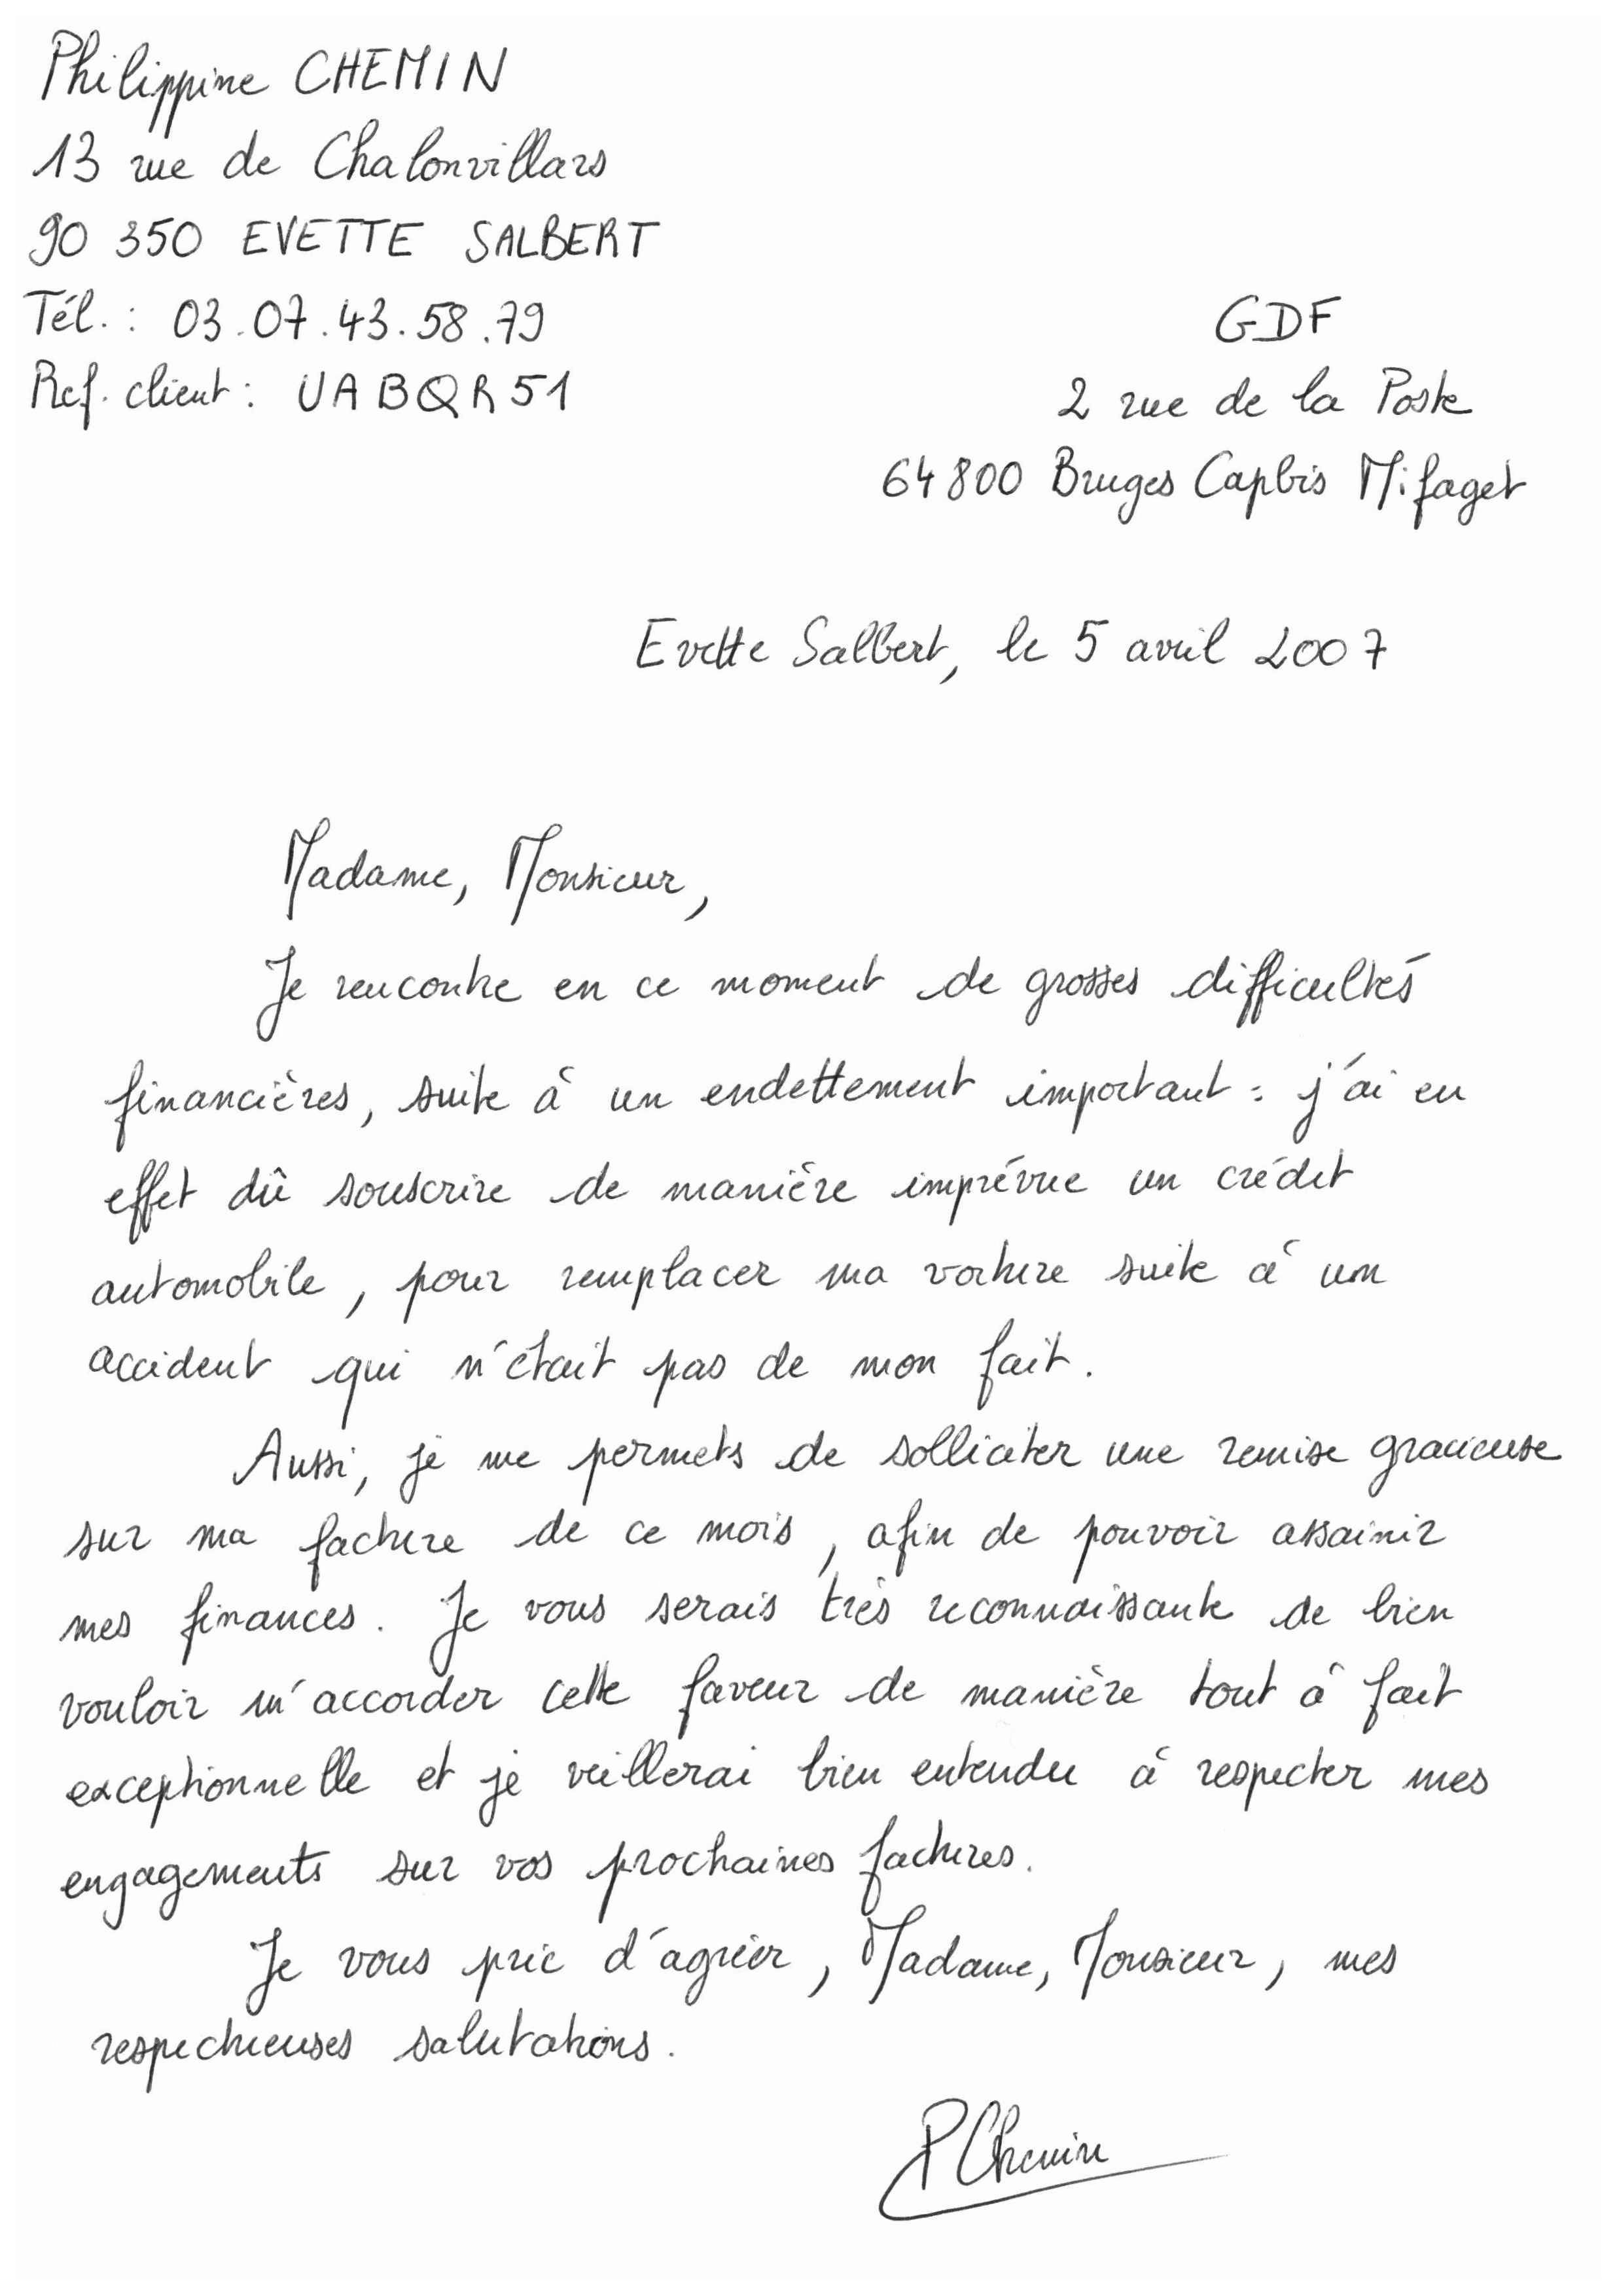 Philippine CHEMIN
13 rue de Chalonvillars
90 350 EVETTE SALBERT
Tél. : 03.07.43.58.79
Ref. client : UABQR51
GDF
2 rue de la Poste
64800 Bruges Capbis Mifaget
Evette Salbert, le 5 avril 2007
Madame, Monsieur,
Je rencontre en ce moment de grosses difficultés
financières, suite à un endettement important : j'ai en
effet dû souscrire de manière imprévue un crédit
automobile, pour remplacer ma voiture suite à un
accident qui n'était pas de mon fait.
Aussi, je me permets de solliciter une remise gracieuse
sur ma facture de ce mois, afin de pouvoir assainir
mes finances. Je vous serais très reconnaissante de bien
vouloir m'accorder cette faveur de manière tout à fait
exceptionnelle et je veillerai bien entendu à respecter mes
engagements sur vos prochaines factures.
Je vous prie d'agréer, Madame, Monsieur, mes
respectueuses salutations.
P Chemin